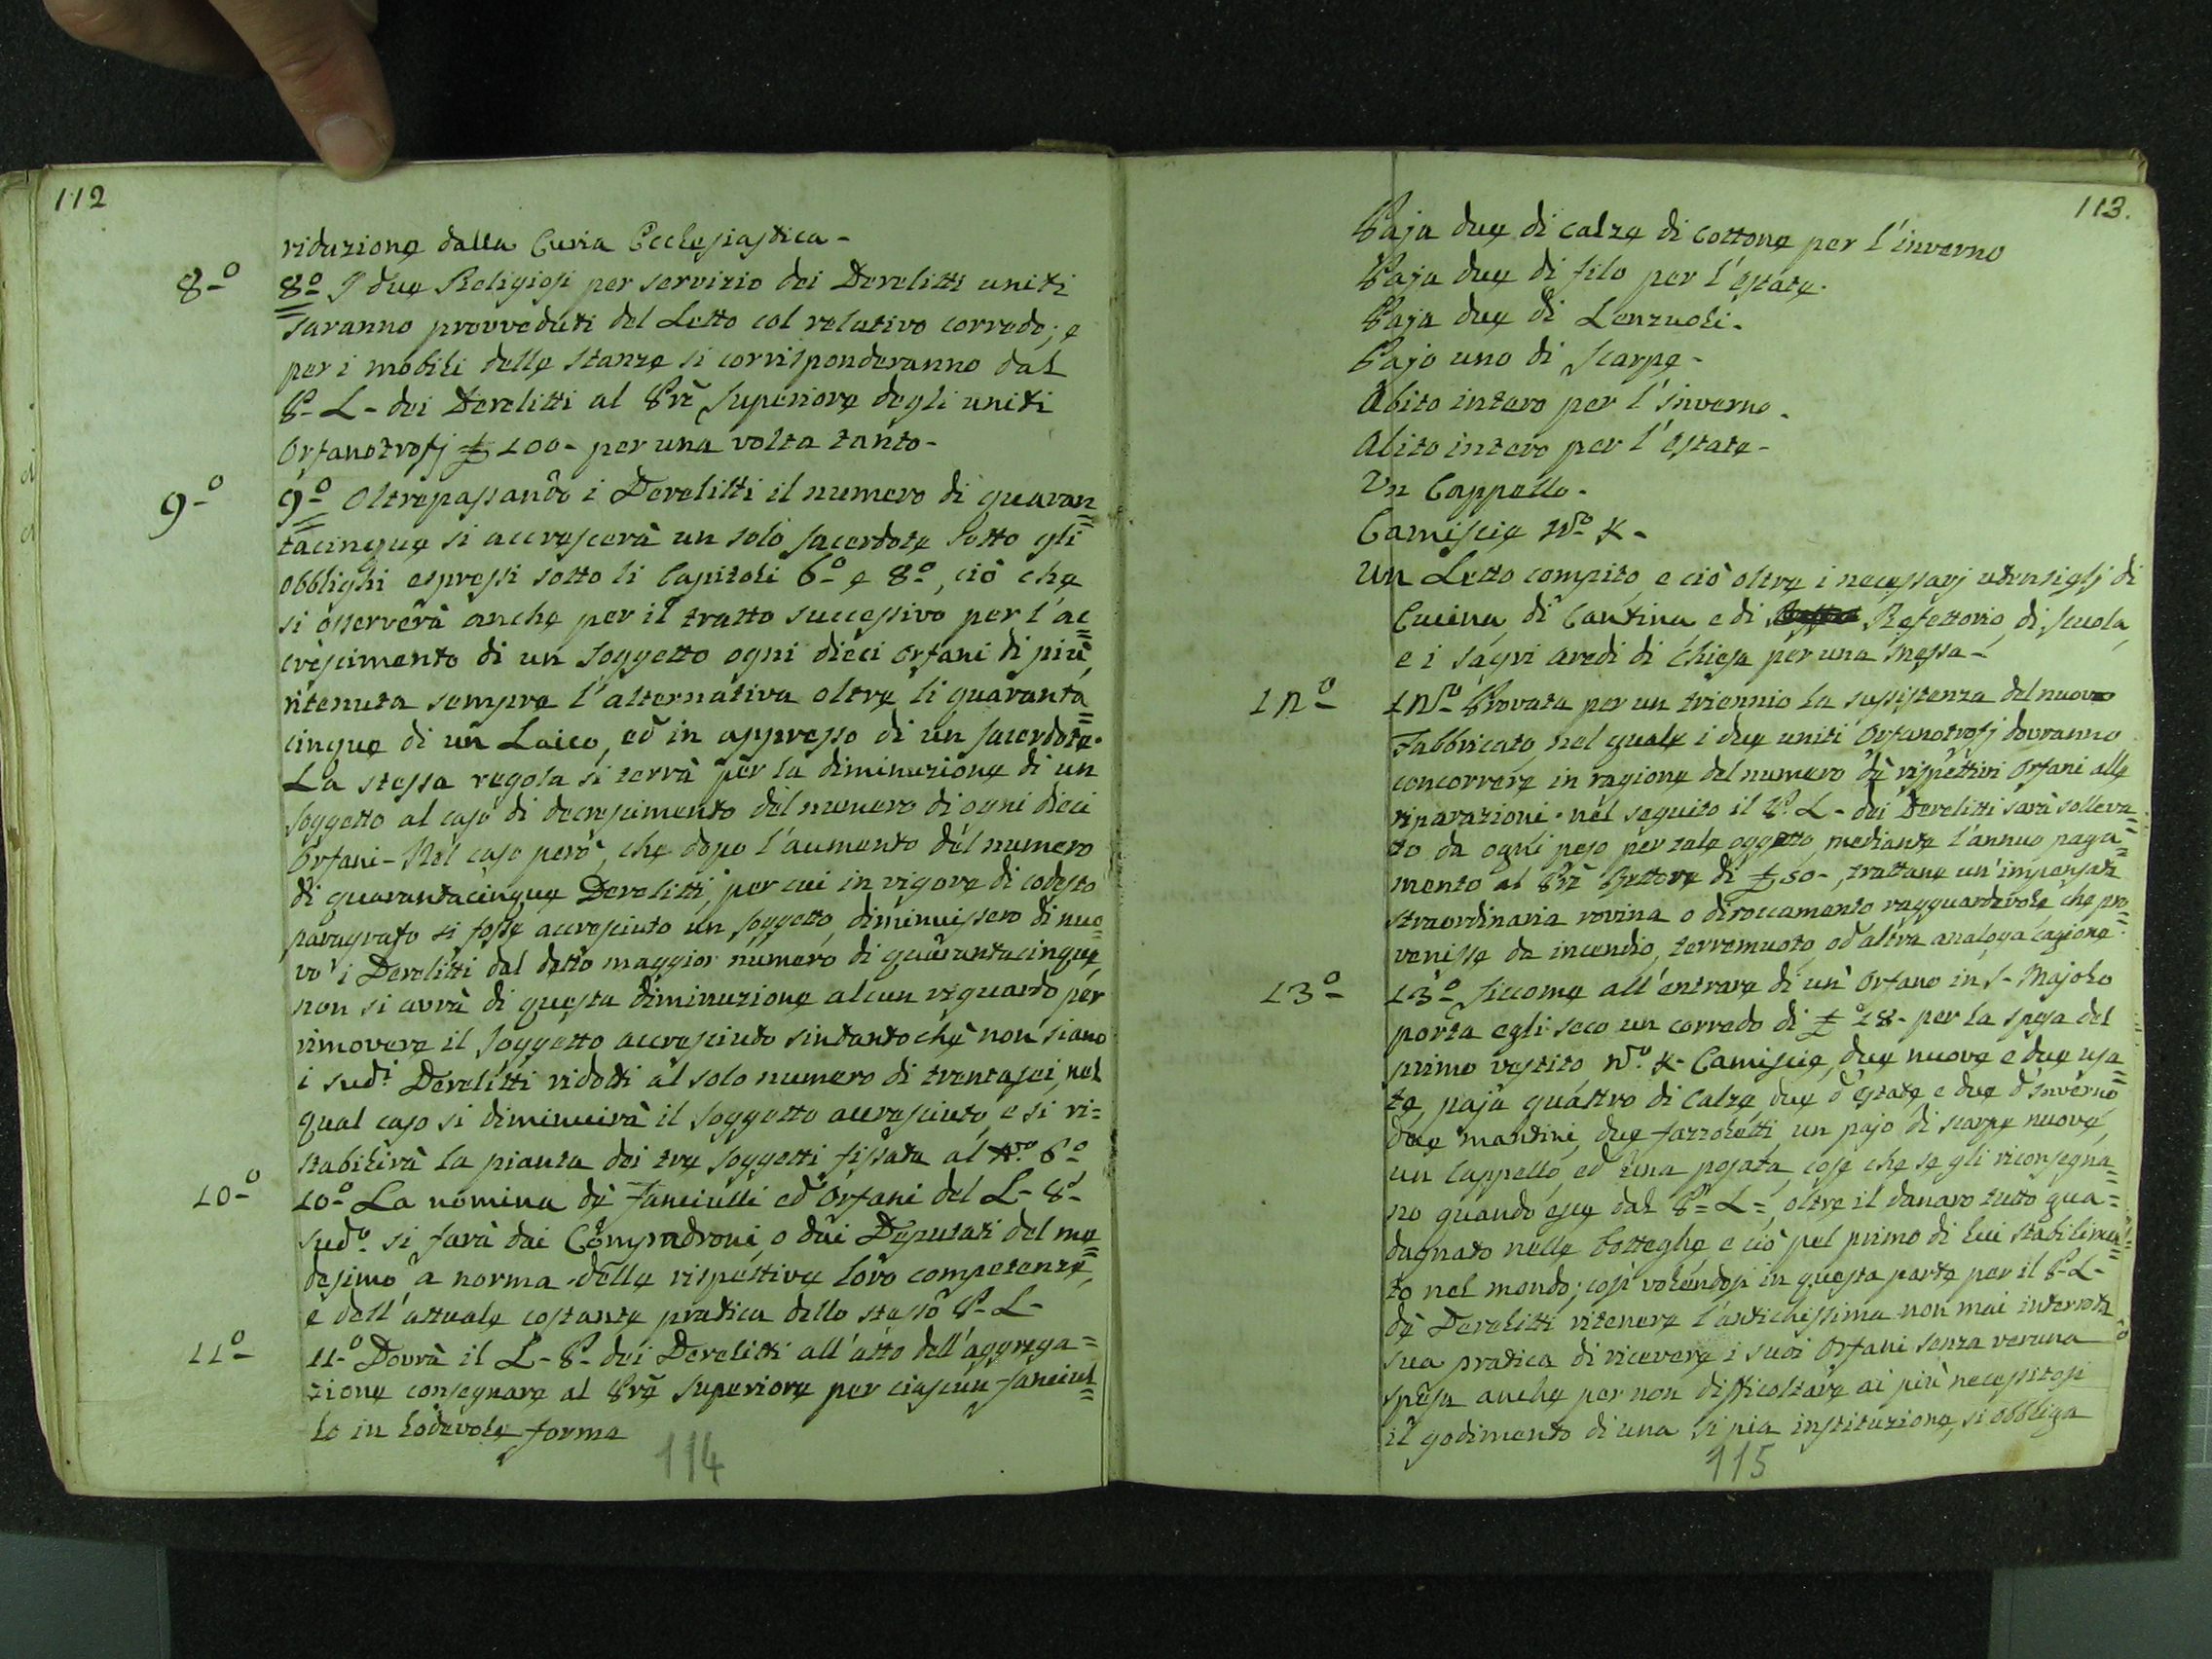 112
riduzione dalla Curia Ecclesiastica-
8º 8º I due Religiosi per servizio dei Derelitti uniti
saranno provveduti del Letto col relativo corredo; e
per i mobili delle stanze si corrisponderanno dal
P- L- dei Derelitti al Prē Superiore degli uniti
Orfanotrofj £ 100- per una volta tanto-
9º 9º Oltrepassando i Derelitti il numero di quaran=
tacinque si accrescerà un solo sacerdote sotto gli
obblighi espressi sotto li Capitoli 6º e 8º, ciò che
si osserverà anche per il tratto successivo per l'ac=
crescimento di un soggetto ogni dieci orfani di più,
ritenuta sempre l'alternativa oltre li quaranta=
cinque di un Laico, ed in appresso di un sacerdote.
La stessa regola si terrà per la diminuzione di un
soggetto al caso di decrescimento del numero di ogni dieci
Orfani- Nel caso però, che dopo l'aumento del numero
di quarantacinque Derelitti, per cui in vigore di codesto
paragrafo si fosse accresciuto un soggetto, diminuissero di nuo=
vo i Derelitti dal detto maggior numero di quarantacinque,
non si avrà di questa diminuzione alcun riguardo per
rimovere il soggetto accresciuto sintanto che non siano
i sudi. Derelitti ridotti al solo numero di trentasei, nel
qual caso si diminuirà il soggetto accresciuto, e si ri=
stabilirà la pianta dei tre soggetti fissata al Nº 6º
10º 10º La nomina de' fanciulli ed Orfani del L- P-
sudº. si farà dai Compadroni, o dai Deputati del me=
desimo a norma delle rispettive loro competenze,
e dell'attuale costante pratica dello stesso P- L-
11º 11º Dovrà il L- P- dei Derelitti all'atto dell'aggrega=
zione consegnare al Prē Superiore per ciascun fanciul=
lo in lodevole forma
114
113.
Paja due di calze di Cottone per l'inverno
Paja due di filo per l'estate.
Paja due di Lenzuoli.
Pajo uno di Scarpe-
Abito intero per l'inverno.
Abito intero per l'estate-
Un Cappello.
Camiscie Nº 4-
Un Letto compito, e ciò oltre i necessarj utensiglj di
Cucina, di Cantina e di Refettorio, di scuola,
e i sagri aredi di Chiesa per una Messa-
12º 12º Provata per un triennio la sussistenza del nuovo
Fabbricato, nel quale i due uniti Orfanotrofj dovranno
concorrere in ragione del numero de' rispettivi Orfani alle
riparazioni. nel seguito il P. L- dei Derelitti sarà solleva=
to da ogni peso per tale oggetto, mediante l'annuo paga=
mento al Prē Rettore di £ 50-, trattane un'impensata
straordinaria rovina o diroccamento ragguardevole, che pro=
venisse da incendio, terremuoto, od altra analoga cagione.
13º 13º Siccome all'entrare di un Orfano in S- Majolo
porta egli seco un corredo di £ 18- per la spesa del
primo vestito, Nº. 4- Camiscie, due nuove e due usa=
te, paja quattro di Calze due d'estate e due d'inverno
due mantini, due fazzoletti, un pajo di scarpe nuove,
un Cappello, ed una posata, cose che se gli riconsegna=
no quando esce dal P- L-, oltre il danaro tutto gua=
dagnato nelle Botteghe e ciò pel primo di lui stabilimen=
to nel mondo; così volendosi in questa parte per il P- L-
de' Derelitti ritenere l'antichissima non mai interrotta
sua pratica di ricevere i suoi Orfani senza veruna
spesa anche per non difficoltare ai più necessitosi
il godimento di una si pia instituzione, si obbliga
115